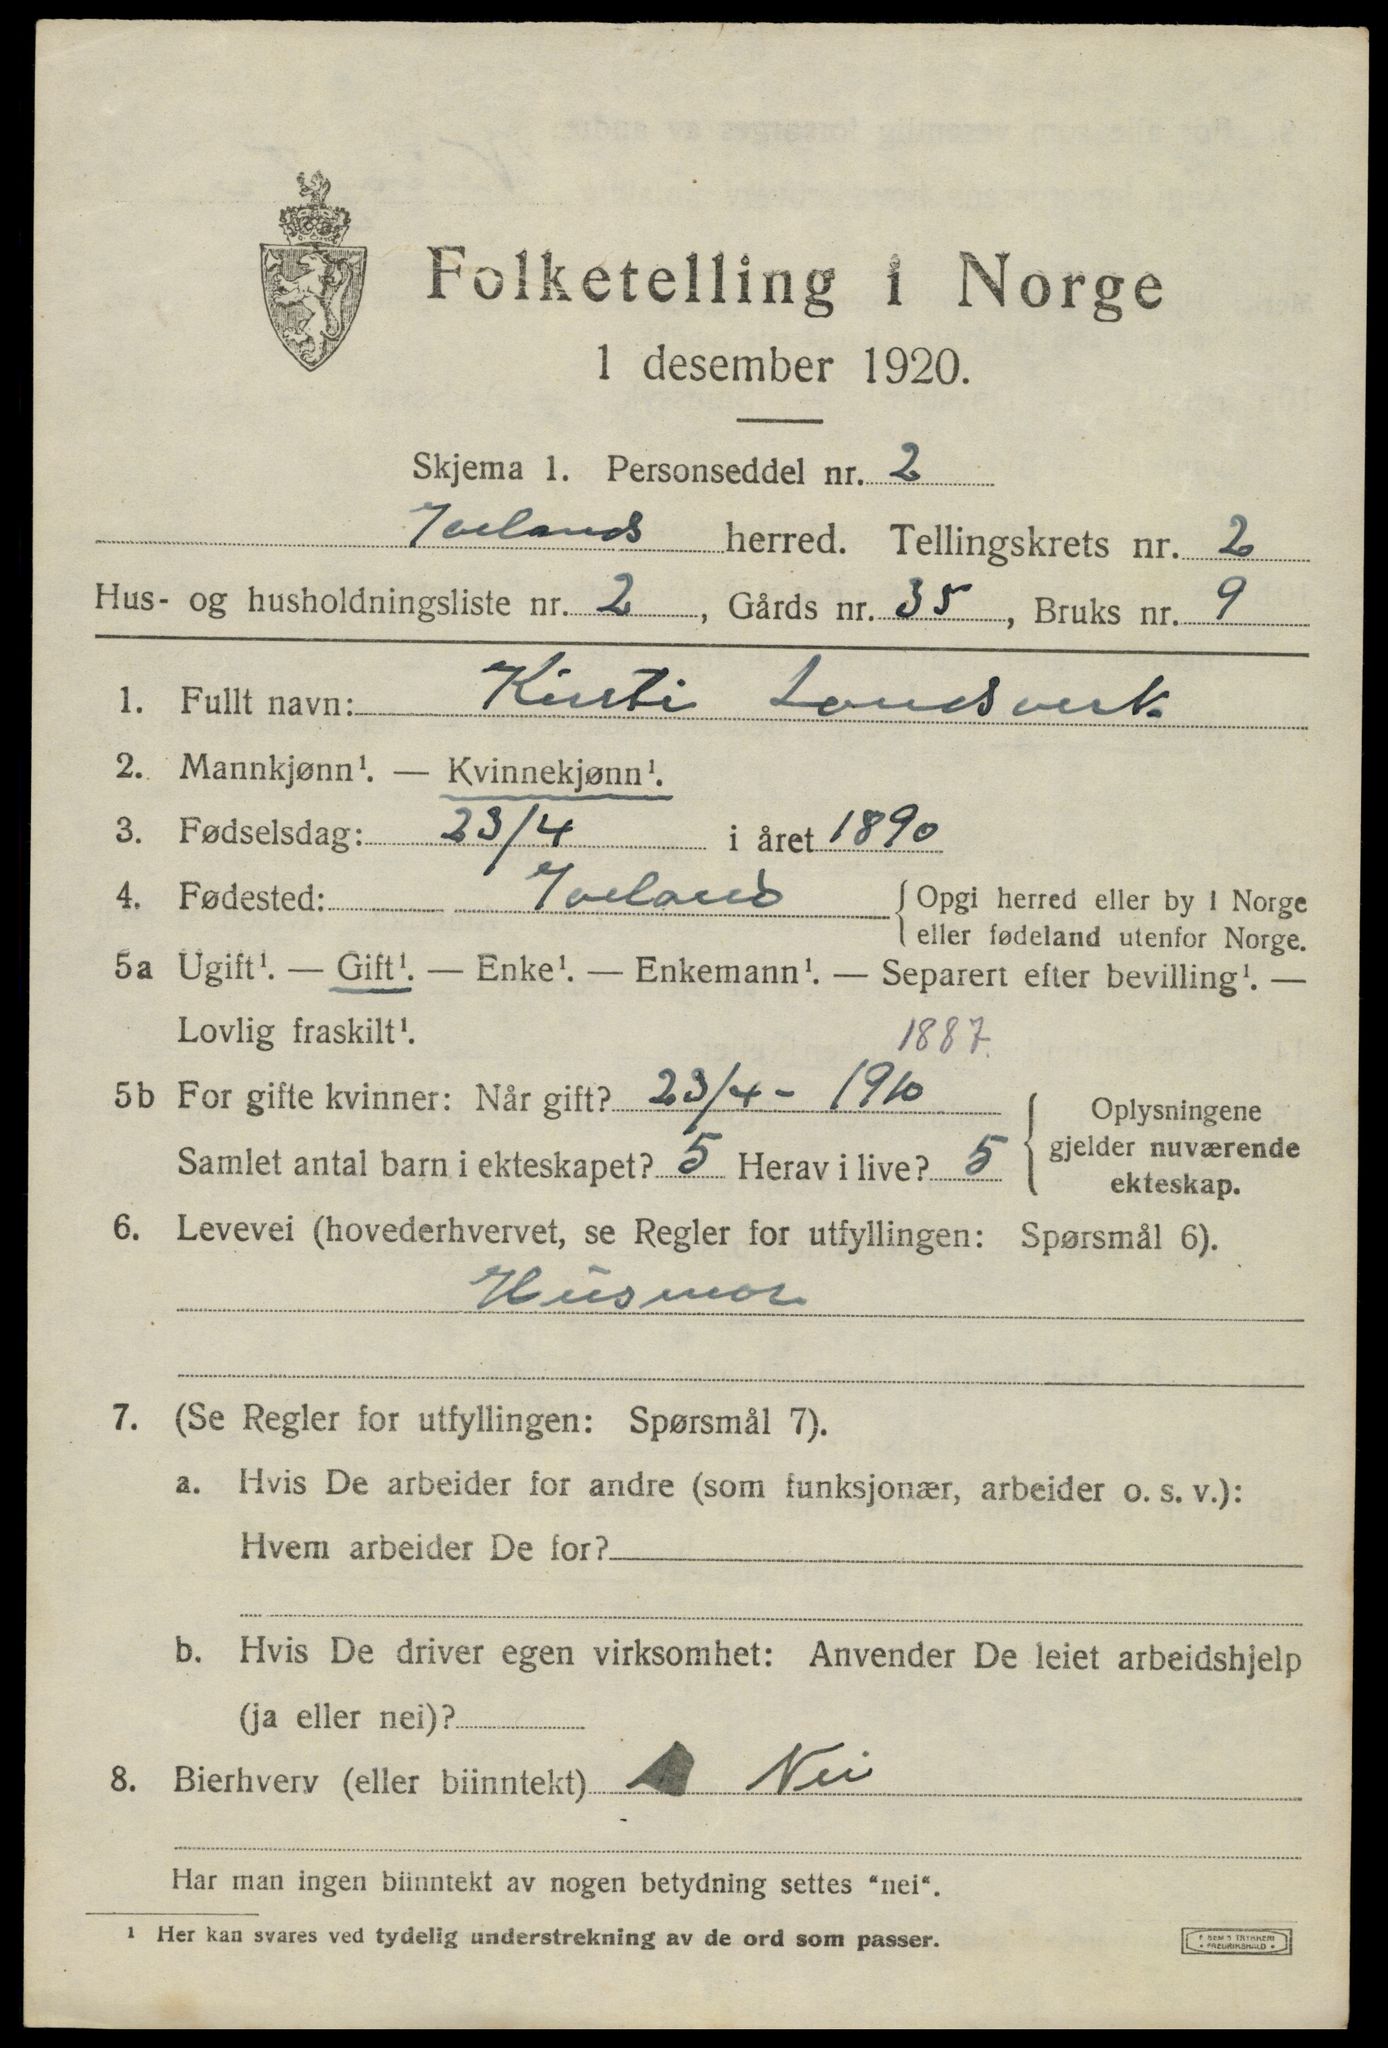 Folketelling i Norge
1 desember 1920.
Skjema 1. Personseddel nr. 2
Ivelands herred. Tellingskrets nr. 2
Hus- og husholdningsliste nr. 2, Gårds nr. 35, Bruks nr. 9
1. Fullt navn: Kirsti Landsverk
2. Mannkjønn¹. — Kvinnekjønn¹.
3. Fødselsdag: 23/4 i året 1890
4. Fødested: Iveland { Opgi herred eller by i Norge
eller fødeland utenfor Norge.
5a Ugift¹. — Gift¹. — Enke¹. — Enkemann¹. — Separert efter bevilling¹. —
Lovlig fraskilt¹.
1887.
5b For gifte kvinner: Når gift? 23/4 - 1910
Samlet antal barn i ekteskapet? 5 Herav i live? 5
Oplysningene
gjelder nuværende
ekteskap.
6. Levevei (hovederhvervet, se Regler for utfyllingen: Spørsmål 6).
Husmor
7. (Se Regler for utfyllingen: Spørsmål 7).
a. Hvis De arbeider for andre (som funksjonær, arbeider o. s. v.):
Hvem arbeider De for?
b. Hvis De driver egen virksomhet: Anvender De leiet arbeidshjelp
(ja eller nei)?
8. Bierhverv (eller biinntekt) Nei
Har man ingen biinntekt av nogen betydning settes "nei".
¹ Her kan svares ved tydelig understrekning av de ord som passer.
TRYKKERI
FREDRIKSHALD